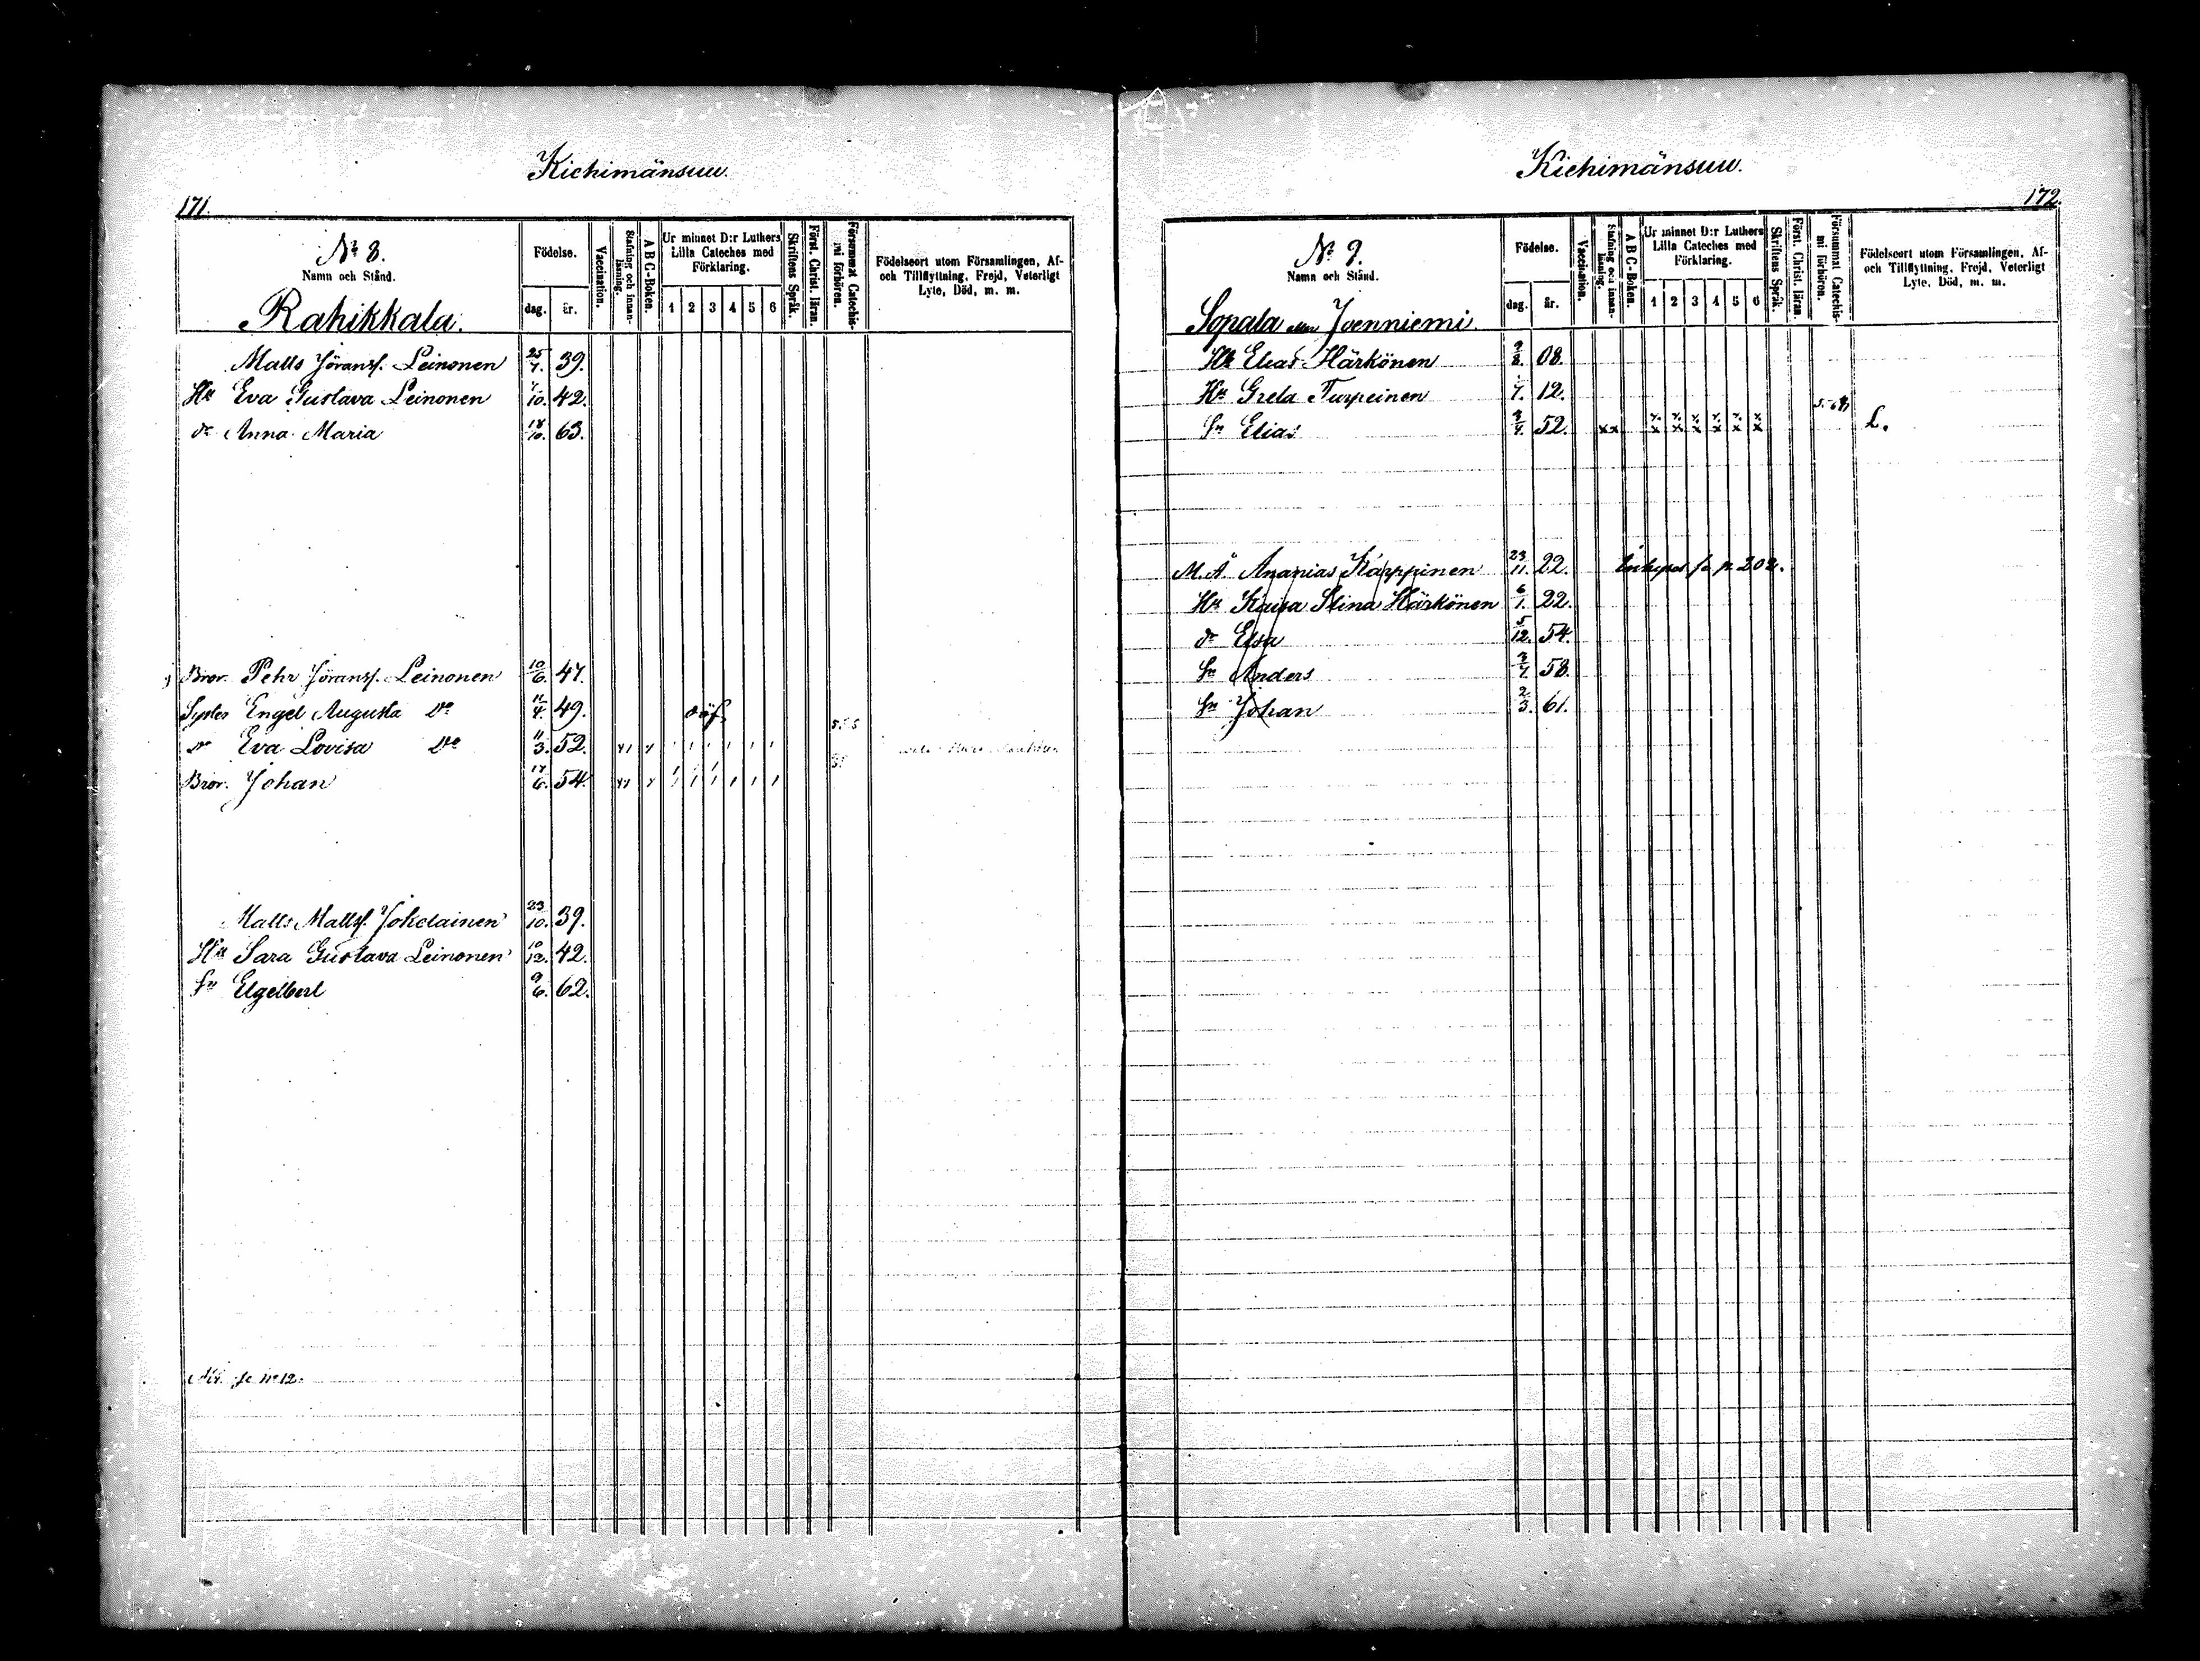 Kiehimänsuu.
171.
Nr 8.
Namn och Stånd.
Rahikkala.
Födelse.
dag. år.
Vaccination.
Stafning och innanläsning.
A B C-Boken.
Ur minnet D:r Luthers Lilla Cateches med Förklaring.
1 2 3 4 5 6
Skriftens Språk.
Först. Christ. läran.
Försummat Catechismi förhören.
Födelseort utom Församlingen, Af- och Tillflyttning, Frejd, Veterligt Lyte, Död, m. m.
Matts Jöransf. Leinonen 25/7. 39.
Hu Eva Gustava Leinonen 10. 42.
dr Anna Maria 18/10. 63.
Bror. Pehr Jöransf. Leinonen 10/6. 47.
Syster Engel Augusta Do 4. 49.
Do Eva Lovisa Do 11/3. 52.
Bror. Johan 14/6. 54.
Matts Mattsf. Jokelainen 23/10. 39.
Hu Sara Gustava Leinonen 10/12. 42.
Sn Elgelbert 9/6. 62.
se no 12.
Kiehimänsuu.
172.
Nr 9.
Namn och Stånd.
Sopala eller Joenniemi.
Födelse.
dag. år.
Vaccination.
Stafning och innanläsning.
A B C-Boken.
Ur minnet D:r Luthers Lilla Cateches med Förklaring.
1 2 3 4 5 6
Skriftens Språk.
Först. Christ. läran.
Försummat Catechismi förhören.
Födelseort utom Församlingen, Af- och Tillflyttning, Frejd, Veterligt Lyte, Död, m. m.
Elias Härkönen 2/8. 08.
Hu Greta Turpeinen 7. 12.
Sn Elias 52. L.
M. Å. Ananias Karppinen 23/11. 22. se p. 202.
Hu Kaisa Stina Härkönen 6/1. 22.
dr Elsa 5/12. 54.
Sn Anders 58.
Sn Johan 2/3. 61.